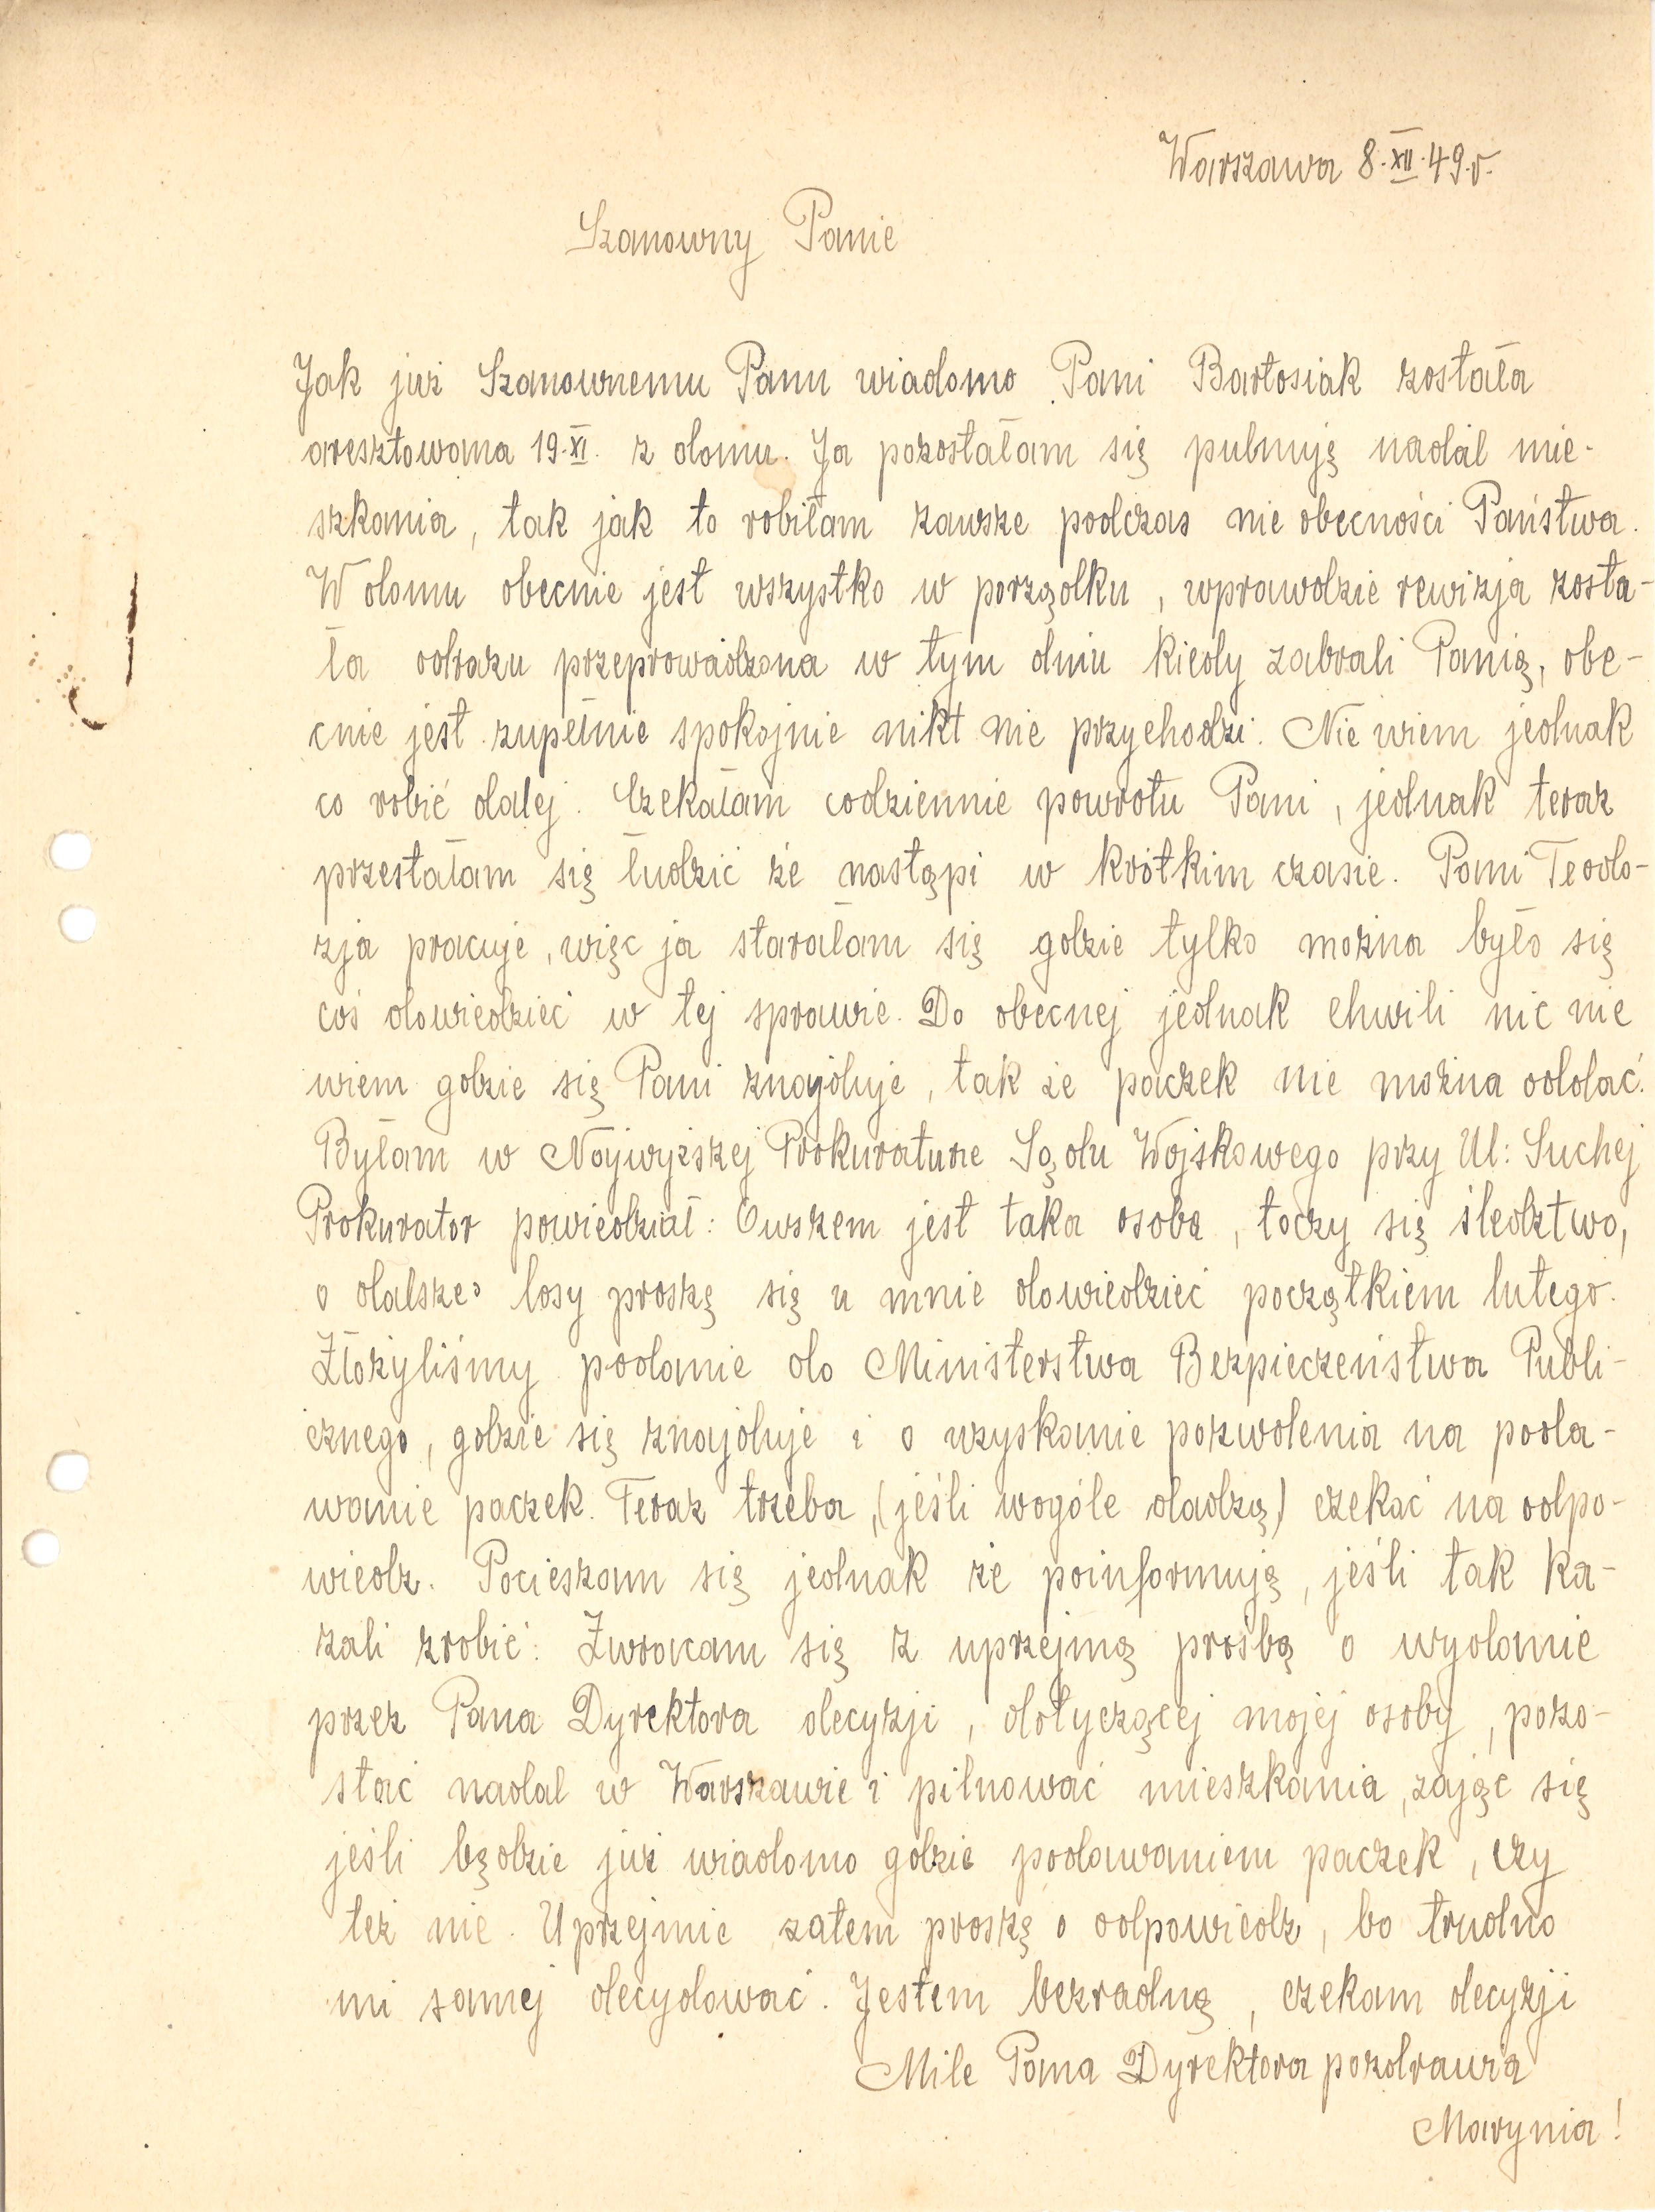 Warszawa 8.XII.49.r.
Szanowny Panie
Jak już Szanownemu Panu wiadomo Pani Bartosiak została
aresztowana 19.XI. z domu. Ja pozostałam się pulnuję nadal mie-
szkania, tak jak to robiłam zawsze podczas nie obecności Państwa.
W domu obecnie jest wszystko w porządku, wprawdzie rewizja zosta-
ła odrazu przeprowadzona w tym dniu kiedy zabrali Panią, obe-
cnie jest zupełnie spokojnie nikt nie przychodzi. Nie wiem jednak
co robić dalej. Czekałam codziennie powrotu Pani, jednak teraz
przestałam się łudzić że nastąpi w krótkim czasie. Pani Teodo-
zja pracuje, więc ja starałam się gdzie tylko można było się
coś dowiedzieć w tej sprawie. Do obecnej jednak chwili nic nie
wiem gdzie się Pani znajduje, tak że paczek nie można oddać.
Byłam w Najwyższej Prokuraturze Sądu Wojskowego przy Ul: Suchej
Prokurator powiedział: Owszem jest taka osoba, toczy się śledztwo,
o dalsze losy proszę się u mnie dowiedzieć początkiem lutego.
Złożyliśmy podanie do Ministerstwa Bezpieczeństwa Publi-
cznego, gdzie się znajduje i o uzyskanie pozwolenia na poda-
wanie paczek. Teraz trzeba, (jeśli wogóle dadzą) czekać na odpo-
wiedz. Pocieszam się jednak że poinformują, jeśli tak ka-
zali zrobić. Zwracam się z uprzejmą prośbą o wydanie
przez Pana Dyrektora decyzji, dotyczącej mojej osoby, pozo-
stać nadal w Warszawie i pilnować mieszkania, zając się
jeśli będzie już wiadomo gdzie podawaniem paczek, czy
też nie. Uprzejmie zatem proszę o odpowiedz, bo trudno
mi samej decydować. Jestem bezradną, czekam decyzji
Mile Pana Dyrektora pozdrawia
Marynia!